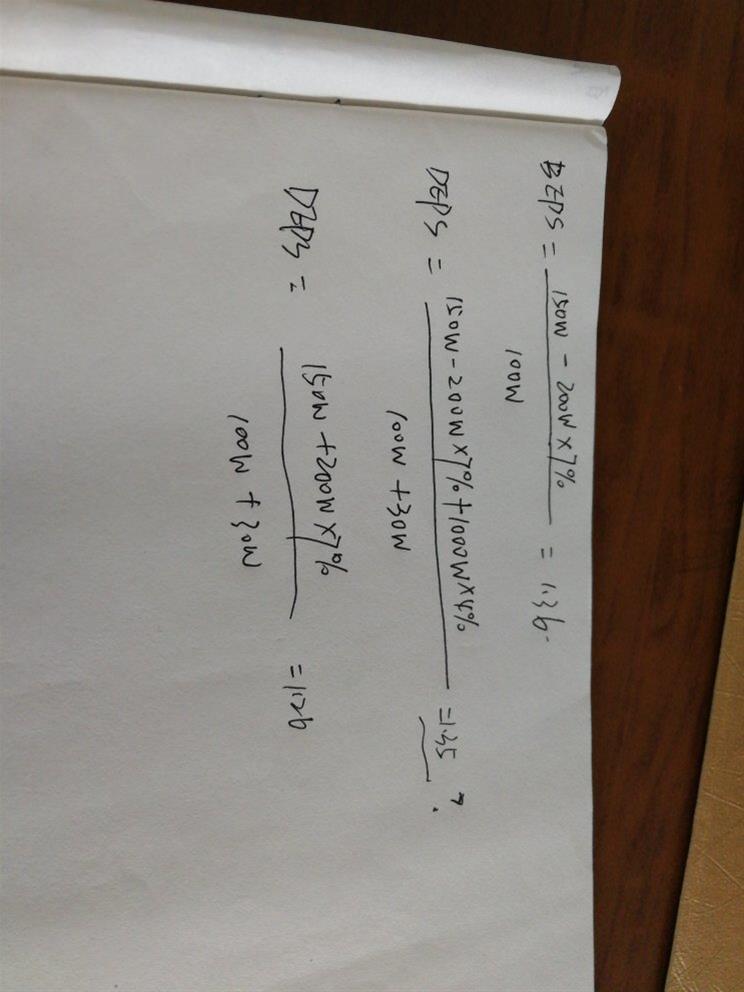 BEPS = 150M - 200M × 7% / 100M = 1.36.
DEPS = 150M - 200M × 7% + 1000M × 4% / 100M + 30M = 1.35 ?
DEPS = 150M + 200M × 7% / 100M + 30M = 1.26